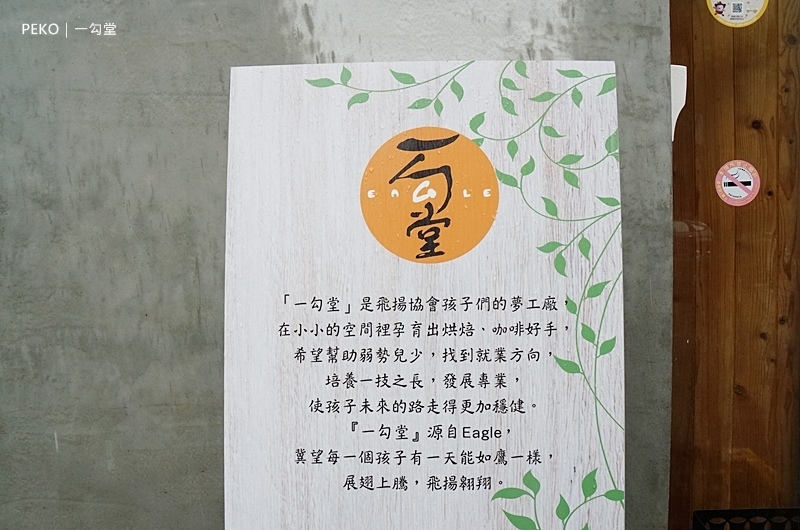 PEKO｜一勾堂
一勾堂
EAGLE
「一勾堂」是飛揚協會孩子們的夢工廠，
在小小的空間裡孕育出烘焙、咖啡好手，
希望幫助弱勢兒少，找到就業方向，
培養一技之長，發展專業，
使孩子未來的路走得更加穩健。
『一勾堂』源自Eagle，
冀望每一個孩子有一天能如鷹一樣，
展翅上騰，飛揚翱翔。